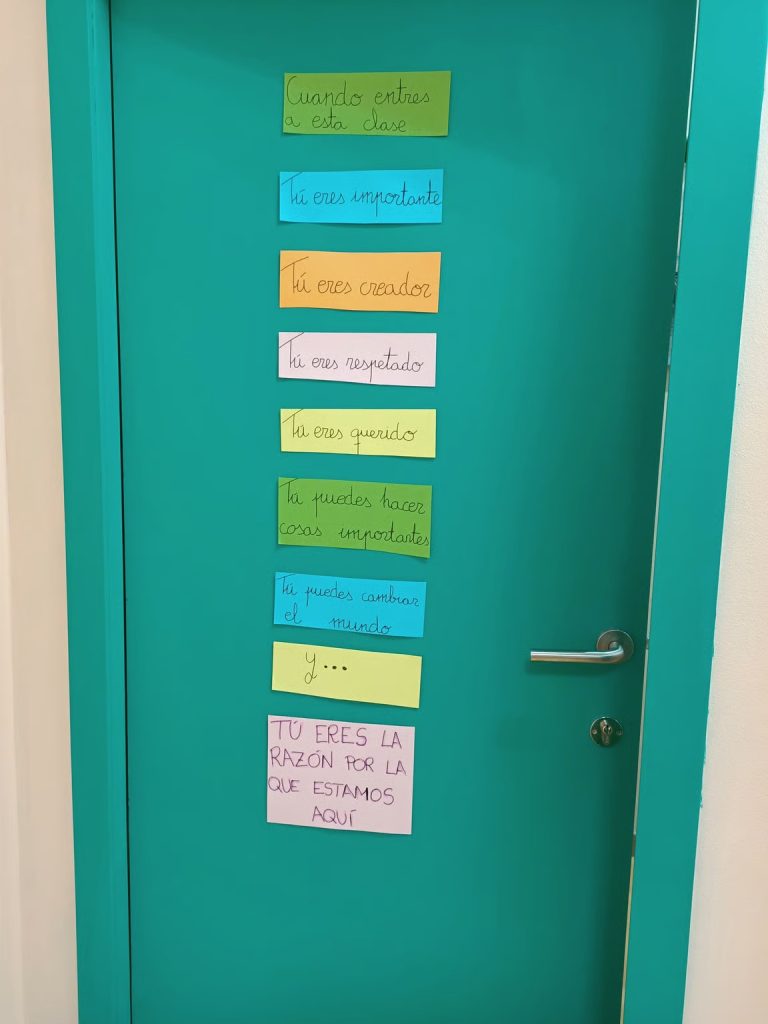 Cuando entres
a esta clase...
Tú eres importante
Tú eres creador
Tú eres respetado
Tú eres querido
Tú puedes hacer
cosas importantes
Tú puedes cambiar
el mundo
y...
TÚ ERES LA
RAZÓN POR LA
QUE ESTAMOS
AQUÍ